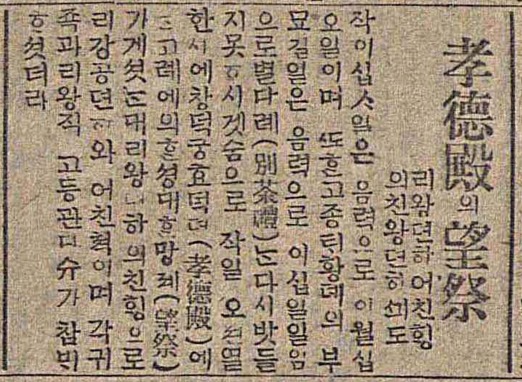 孝德殿의望祭
리왕뎐하어친힝
의친왕뎐하ᄭᅦ도
작이십ᄉᆞ일은 음력으로 이월십
오일이며 ᄯᅩᄒᆞᆫ고종ᄐᆡ황뎨의 부
묘걸일은 음력으로 이십일일임
으로별다례(別茶禮)는다시밧들
지못ᄒᆞ시겟슴으로 작일 오젼열
한시에창덕궁효덕뎐(孝德殿)에
고례에의ᄒᆞ 망졔(望祭)
가게섯는대리왕뎐하의친힝으로
리강공뎐하와 어친척이며 각귀
족과리왕직 고등관 슈가 참ᄇᆡ
ᄒᆞ셧더라